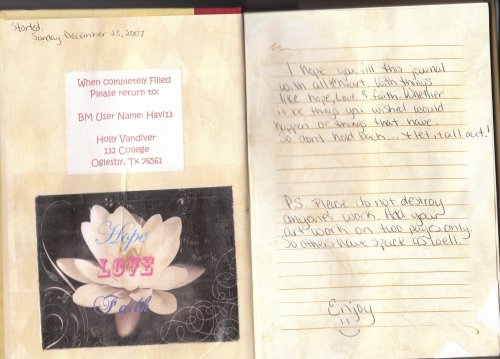 Started,
Sunday December 23, 2007
When completely Filled
Please return to:
BM User Name: Havi23
Holly Vandiver
132 College
Oglesby, Tx 76561
Hope
LOVE
Faith
I hope you fill this journal
with all heart. With things
like hope, Love & faith. Whether
it be things you wished would
happen or things that have.
So don't hold back... & let it all out!
PS. Please do not destroy
anyones work. Add your
art work on two pages only.
So others have space as well.
Enjoy